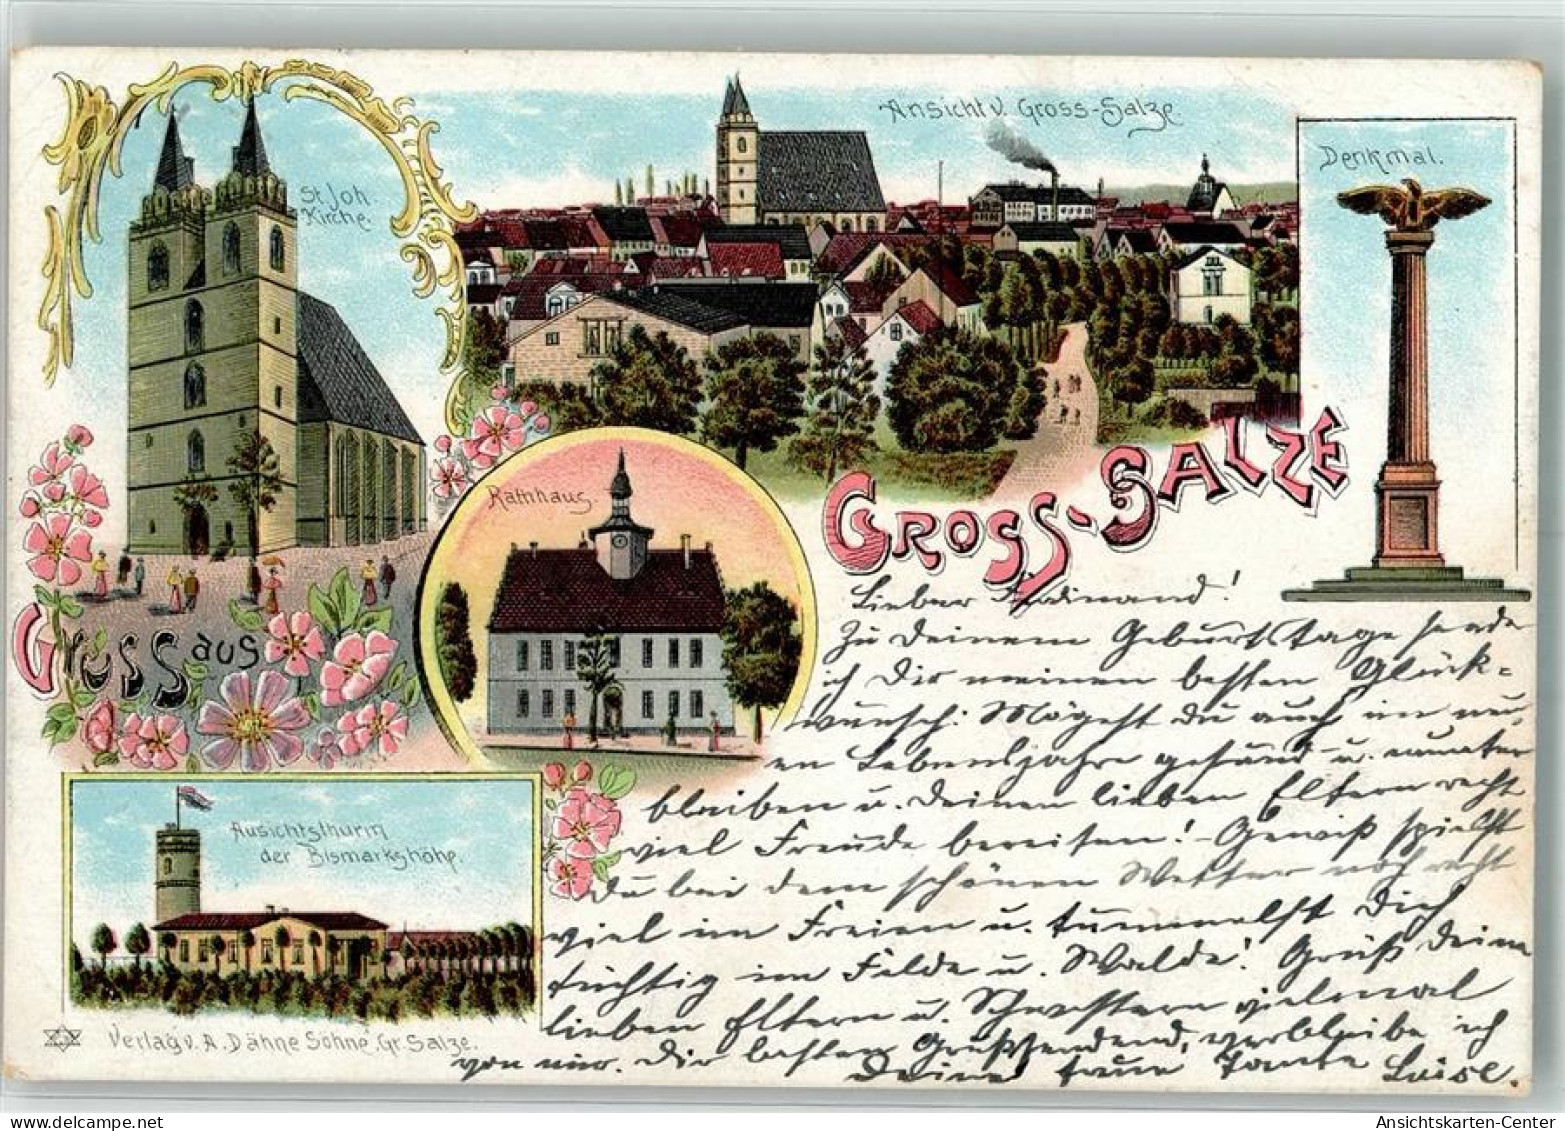 St. Joh.
Kirche.
Ansicht v. Gross-Salze
Denkmal.
Rathhaus.
GROSS-SALZE
Gruss aus
Ausichtsthurm
der Bismarkshöhe.
Verlag v. A. Dähne Söhne, Gr. Salze.
Lieber Ferdinand!
Zu Deinem Geburtstage sende
ich Dir meinen besten Glück-
wunsch: Mögest Du auch im neu-
en Lebensjahre gesund u. munter
bleiben u. Deinen lieben Eltern recht
viel Freude bereiten! Gewiß spielst
Du bei dem schönen Wetter noch recht
viel im Freien u. tummelst Dich
tüchtig im Felde u. Walde! Grüß Deine
lieben Eltern u. Schwestern vielmal
von mir. Dir besten Gruß sendend, verbleibe ich
Deine treue Tante Luise.
Ansichtskarten-Center